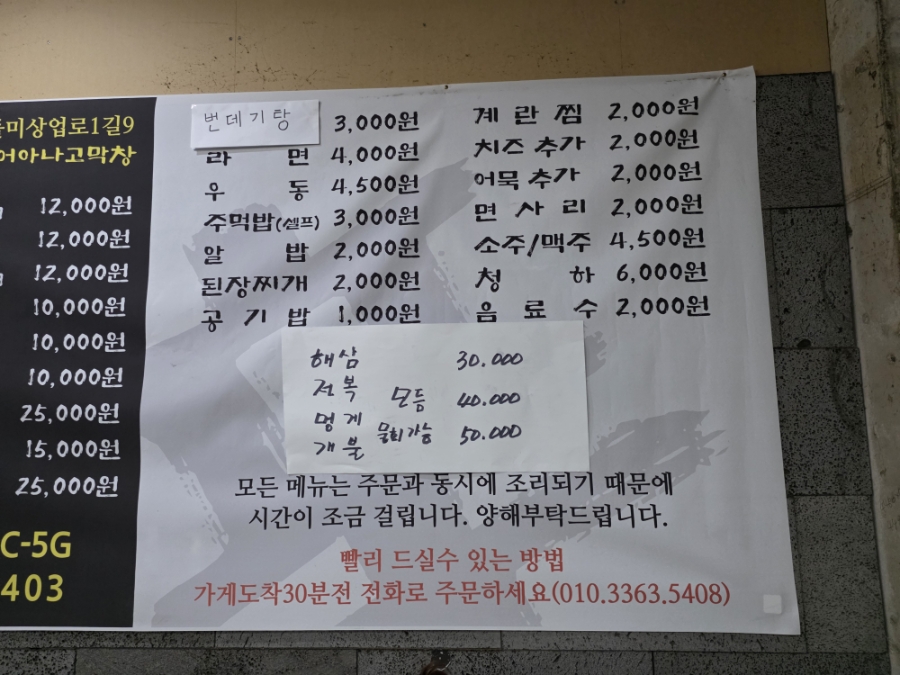 미상업로1길9
어아나고막창
12,000원
12,000원
12,000원
10,000원
10,000원
10,000원
25,000원
15,000원
25,000원
C-5G
403
번데기탕 3,000원
라면 4,000원
우동 4,500원
주먹밥(셀프) 3,000원
알밥 2,000원
된장찌개 2,000원
공기밥 1,000원
계란찜 2,000원
치즈추가 2,000원
어묵추가 2,000원
면사리 2,000원
소주/맥주 4,500원
청하 6,000원
음료수 2,000원
해삼 30.000
전복 모듬 40.000
멍게 물회가능 50.000
개불
모든 메뉴는 주문과 동시에 조리되기 때문에
시간이 조금 걸립니다. 양해부탁드립니다.
빨리 드실수 있는 방법
가게도착30분전 전화로 주문하세요(010.3363.5408)